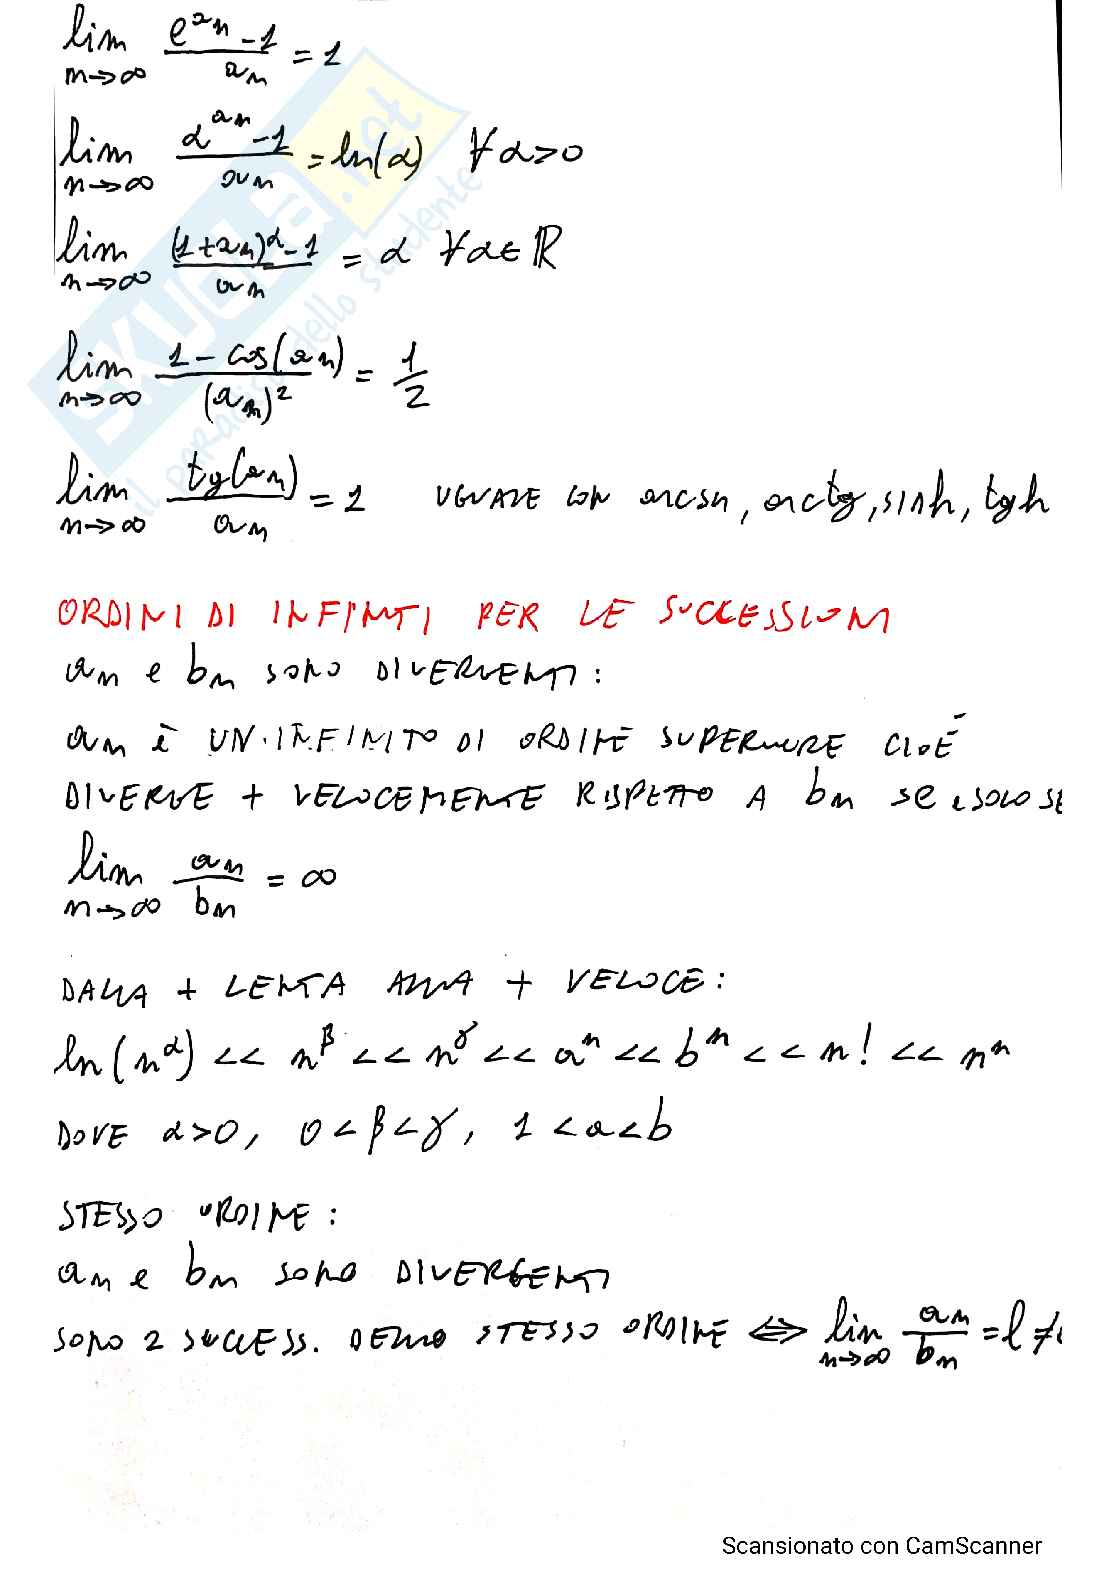 lim n→∞ (e^{a_n} - 1)/a_n = 1
lim n→∞ (α^{a_n} - 1)/a_n = ln(α) ∀α>0
lim n→∞ ((1+a_n)^α - 1)/a_n = α ∀α∈ℝ
lim n→∞ (1 - cos(a_n))/(a_n)^2 = 1/2
lim n→∞ tg(a_n)/a_n = 1 UGUALE CON arcsn, arctg, sinh, tgh
ORDINI DI INFINITI PER LE SUCCESSIONI
a_n e b_n SONO DIVERGENTI:
a_n è UN INFINITO DI ORDINE SUPERIORE CIOÉ
DIVERGE + VELOCEMENTE RISPETTO A b_n se e SOLO SE
lim n→∞ a_n/b_n = ∞
DALLA + LENTA ALLA + VELOCE:
ln(n^α) << n^β << n^γ << a^n << b^n << n! << n^n
DOVE α>0, 0<β<γ, 1<a<b
STESSO ORDINE:
a_n e b_n SONO DIVERGENTI
SONO 2 SUCCESS. DELLO STESSO ORDINE ⟺ lim n→∞ a_n/b_n = l ≠
SKUOLA.net
il paradiso dello studente
Scansionato con CamScanner